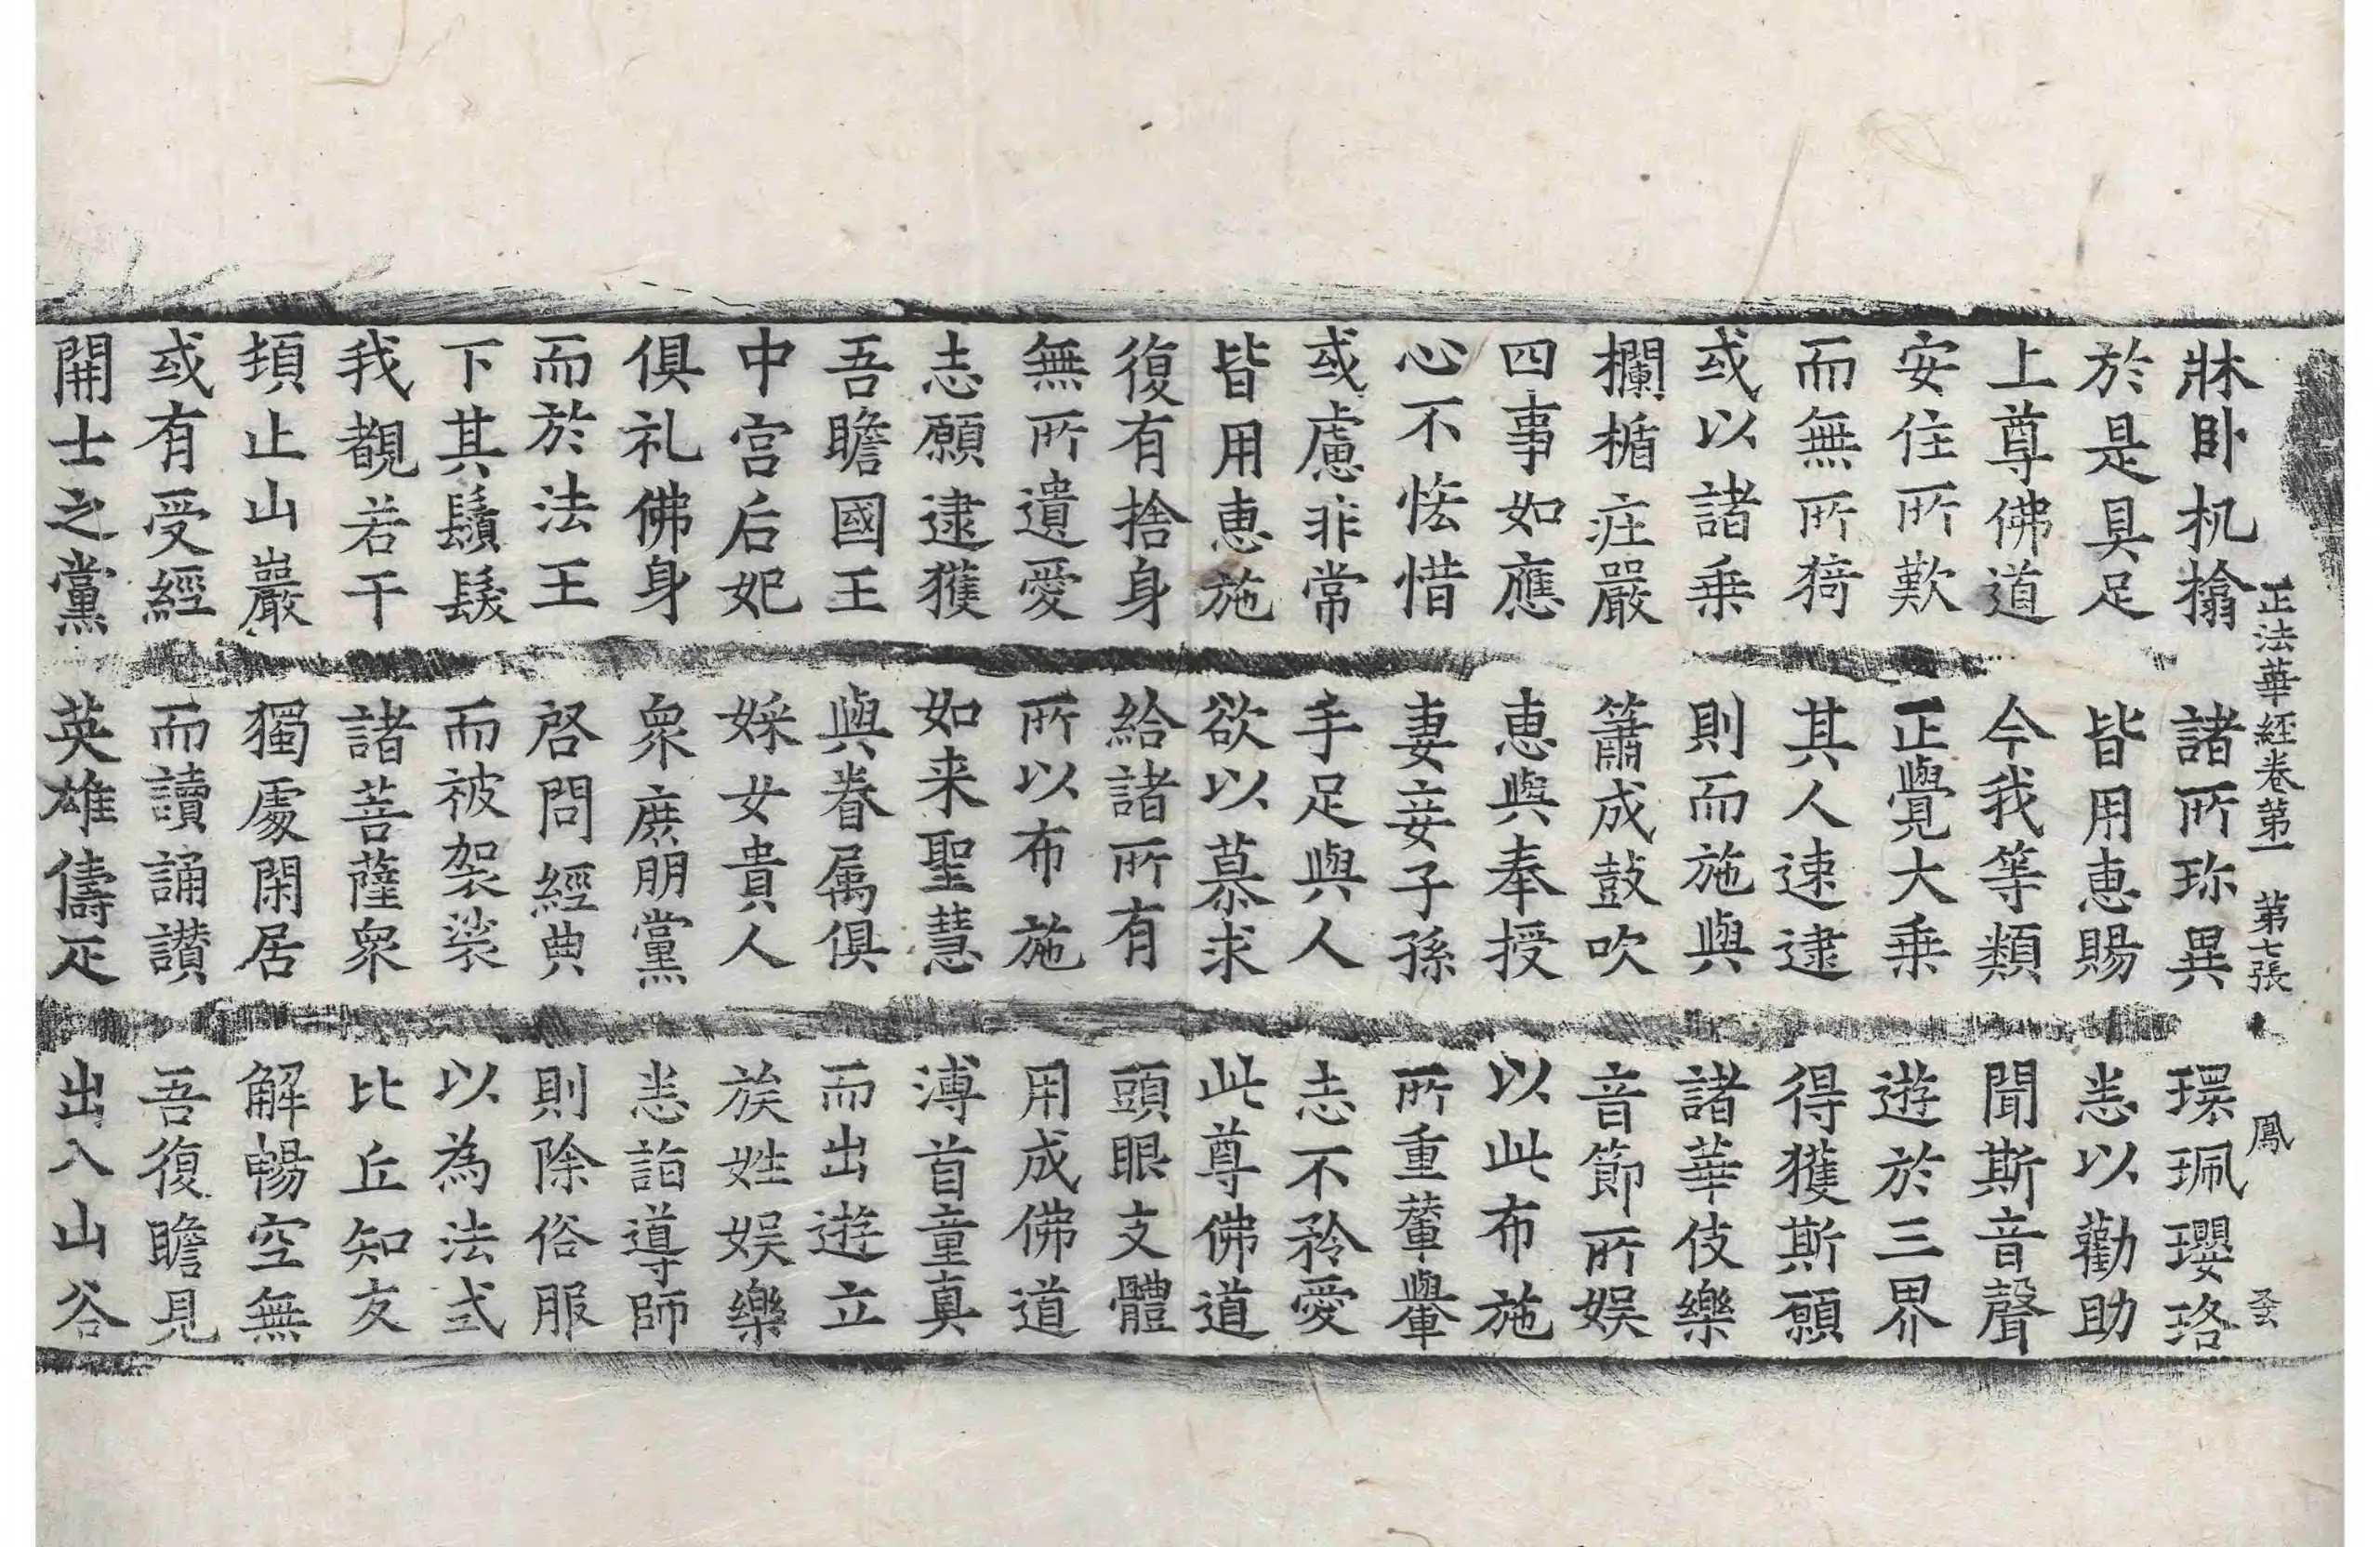 正法華經卷第一 第七張 鳳
牀卧机搶 諸所珎異 環珮瓔珞
於是具足 皆用恵賜 悉以勸助
上尊佛道 今我等類 聞斯音聲
安住所歎 正覺大乗 遊於三界
而無所猗 其人速逮 得獲斯願
或以諸乗 則而施與 諸華伎樂
欄楯庄嚴 簫成鼓吹 音節所娱
四事如應 恵與奉授 以此布施
心不恡惜 妻妾子孫 所重輦轝
或慮非常 手足與人 志不矜愛
皆用恵施 欲以慕求 此尊佛道
復有捨身 給諸所有 頭眼支體
無所遺愛 所以布施 用成佛道
志願逮獲 如来聖慧 溥首童真
吾瞻國王 與眷属俱 而出遊立
中宫后妃 婇女貴人 族姓娱樂
俱礼佛身 衆庶朋黨 悉詣導師
而於法王 啓問經典 則除俗服
下其鬚髮 而被袈裟 以為法式
我覩若干 諸菩薩衆 比丘知友
頃止山巖 獨處閑居 解暢空無
或有受經 而讀誦讃 吾復瞻見
開士之黨 英雄儔疋 出入山谷